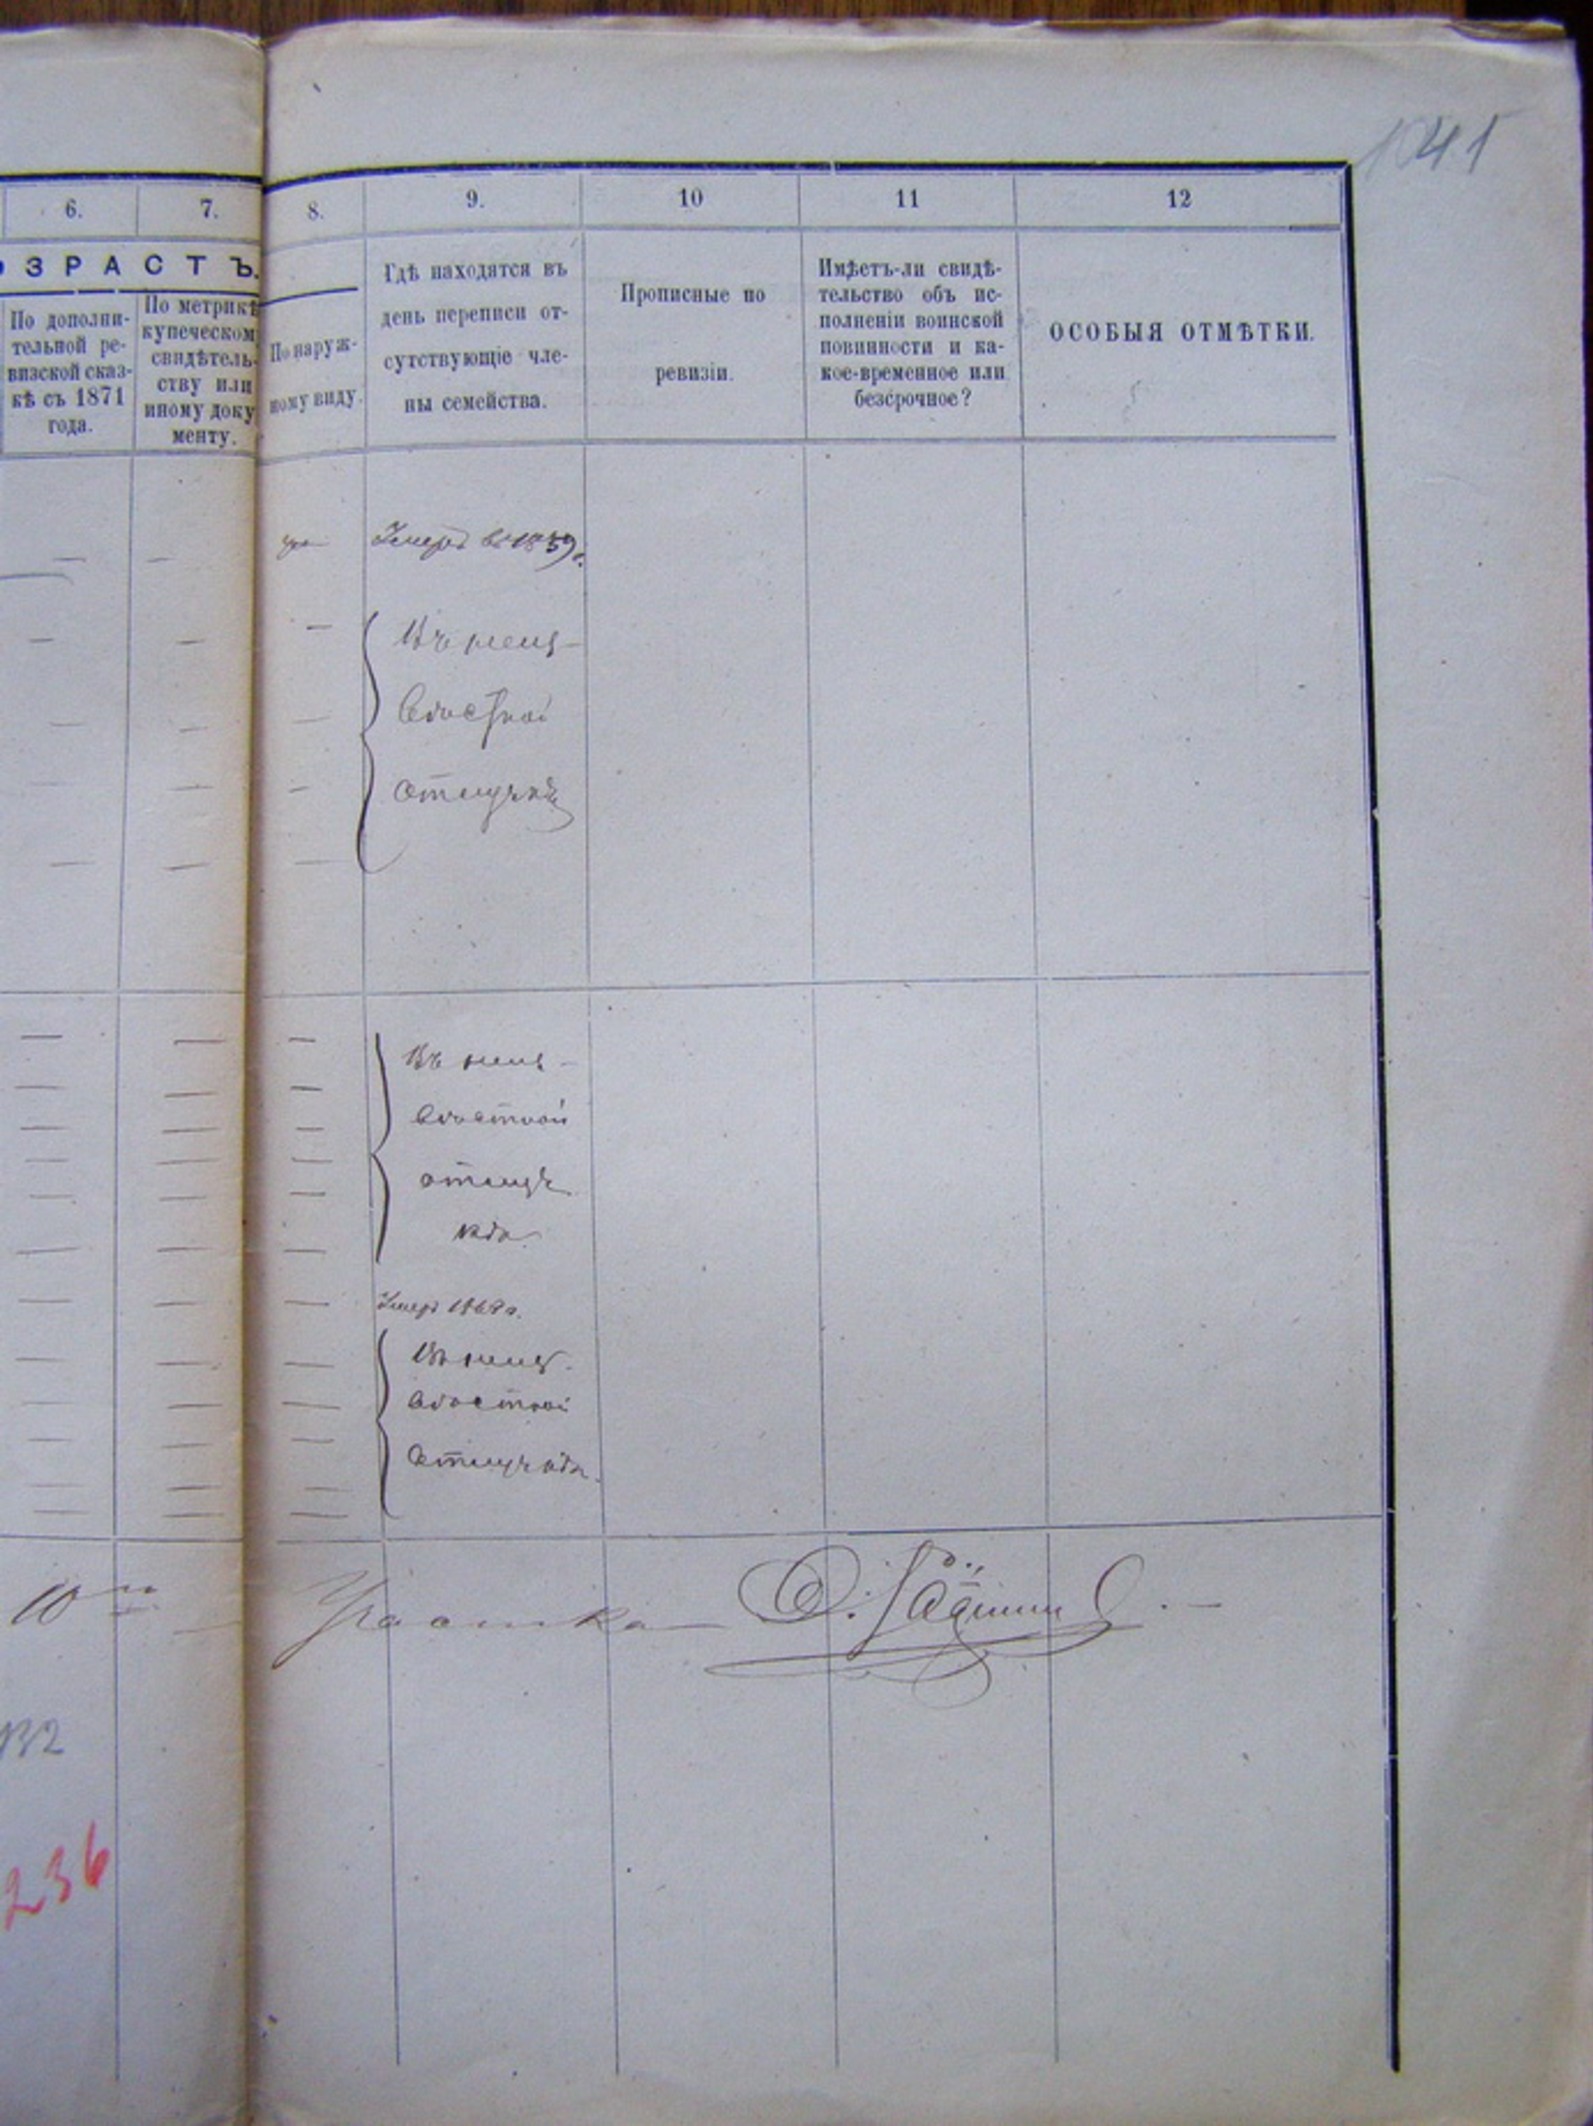 1041
6.
7.
8.
9.
10
11
12
ОЗРАСТЪ.
По дополни-
тельной ре-
визской сказ-
кѣ съ 1871
года.
По метрикѣ
купеческом
свидѣтель-
ству или
иному доку
менту.
По наруж-
ному виду.
Гдѣ находятся въ
день переписи от-
сутствующіе чле-
ны семейства.
Прописные по
ревизіи.
Имѣетъ-ли свидѣ-
тельство объ ис-
полненіи воинской
повинности и ка-
кое-временное или
безсрочное?
ОСОБЫЯ ОТМѢТКИ.
Умеръ въ 1859 г.
Въ неиз-
вѣстной
отлучкѣ
Въ неиз-
вѣстной
отлуч
кѣ
Умеръ
Въ неиз-
вѣстной
отлучкѣ.
10 го
Участка
132
236